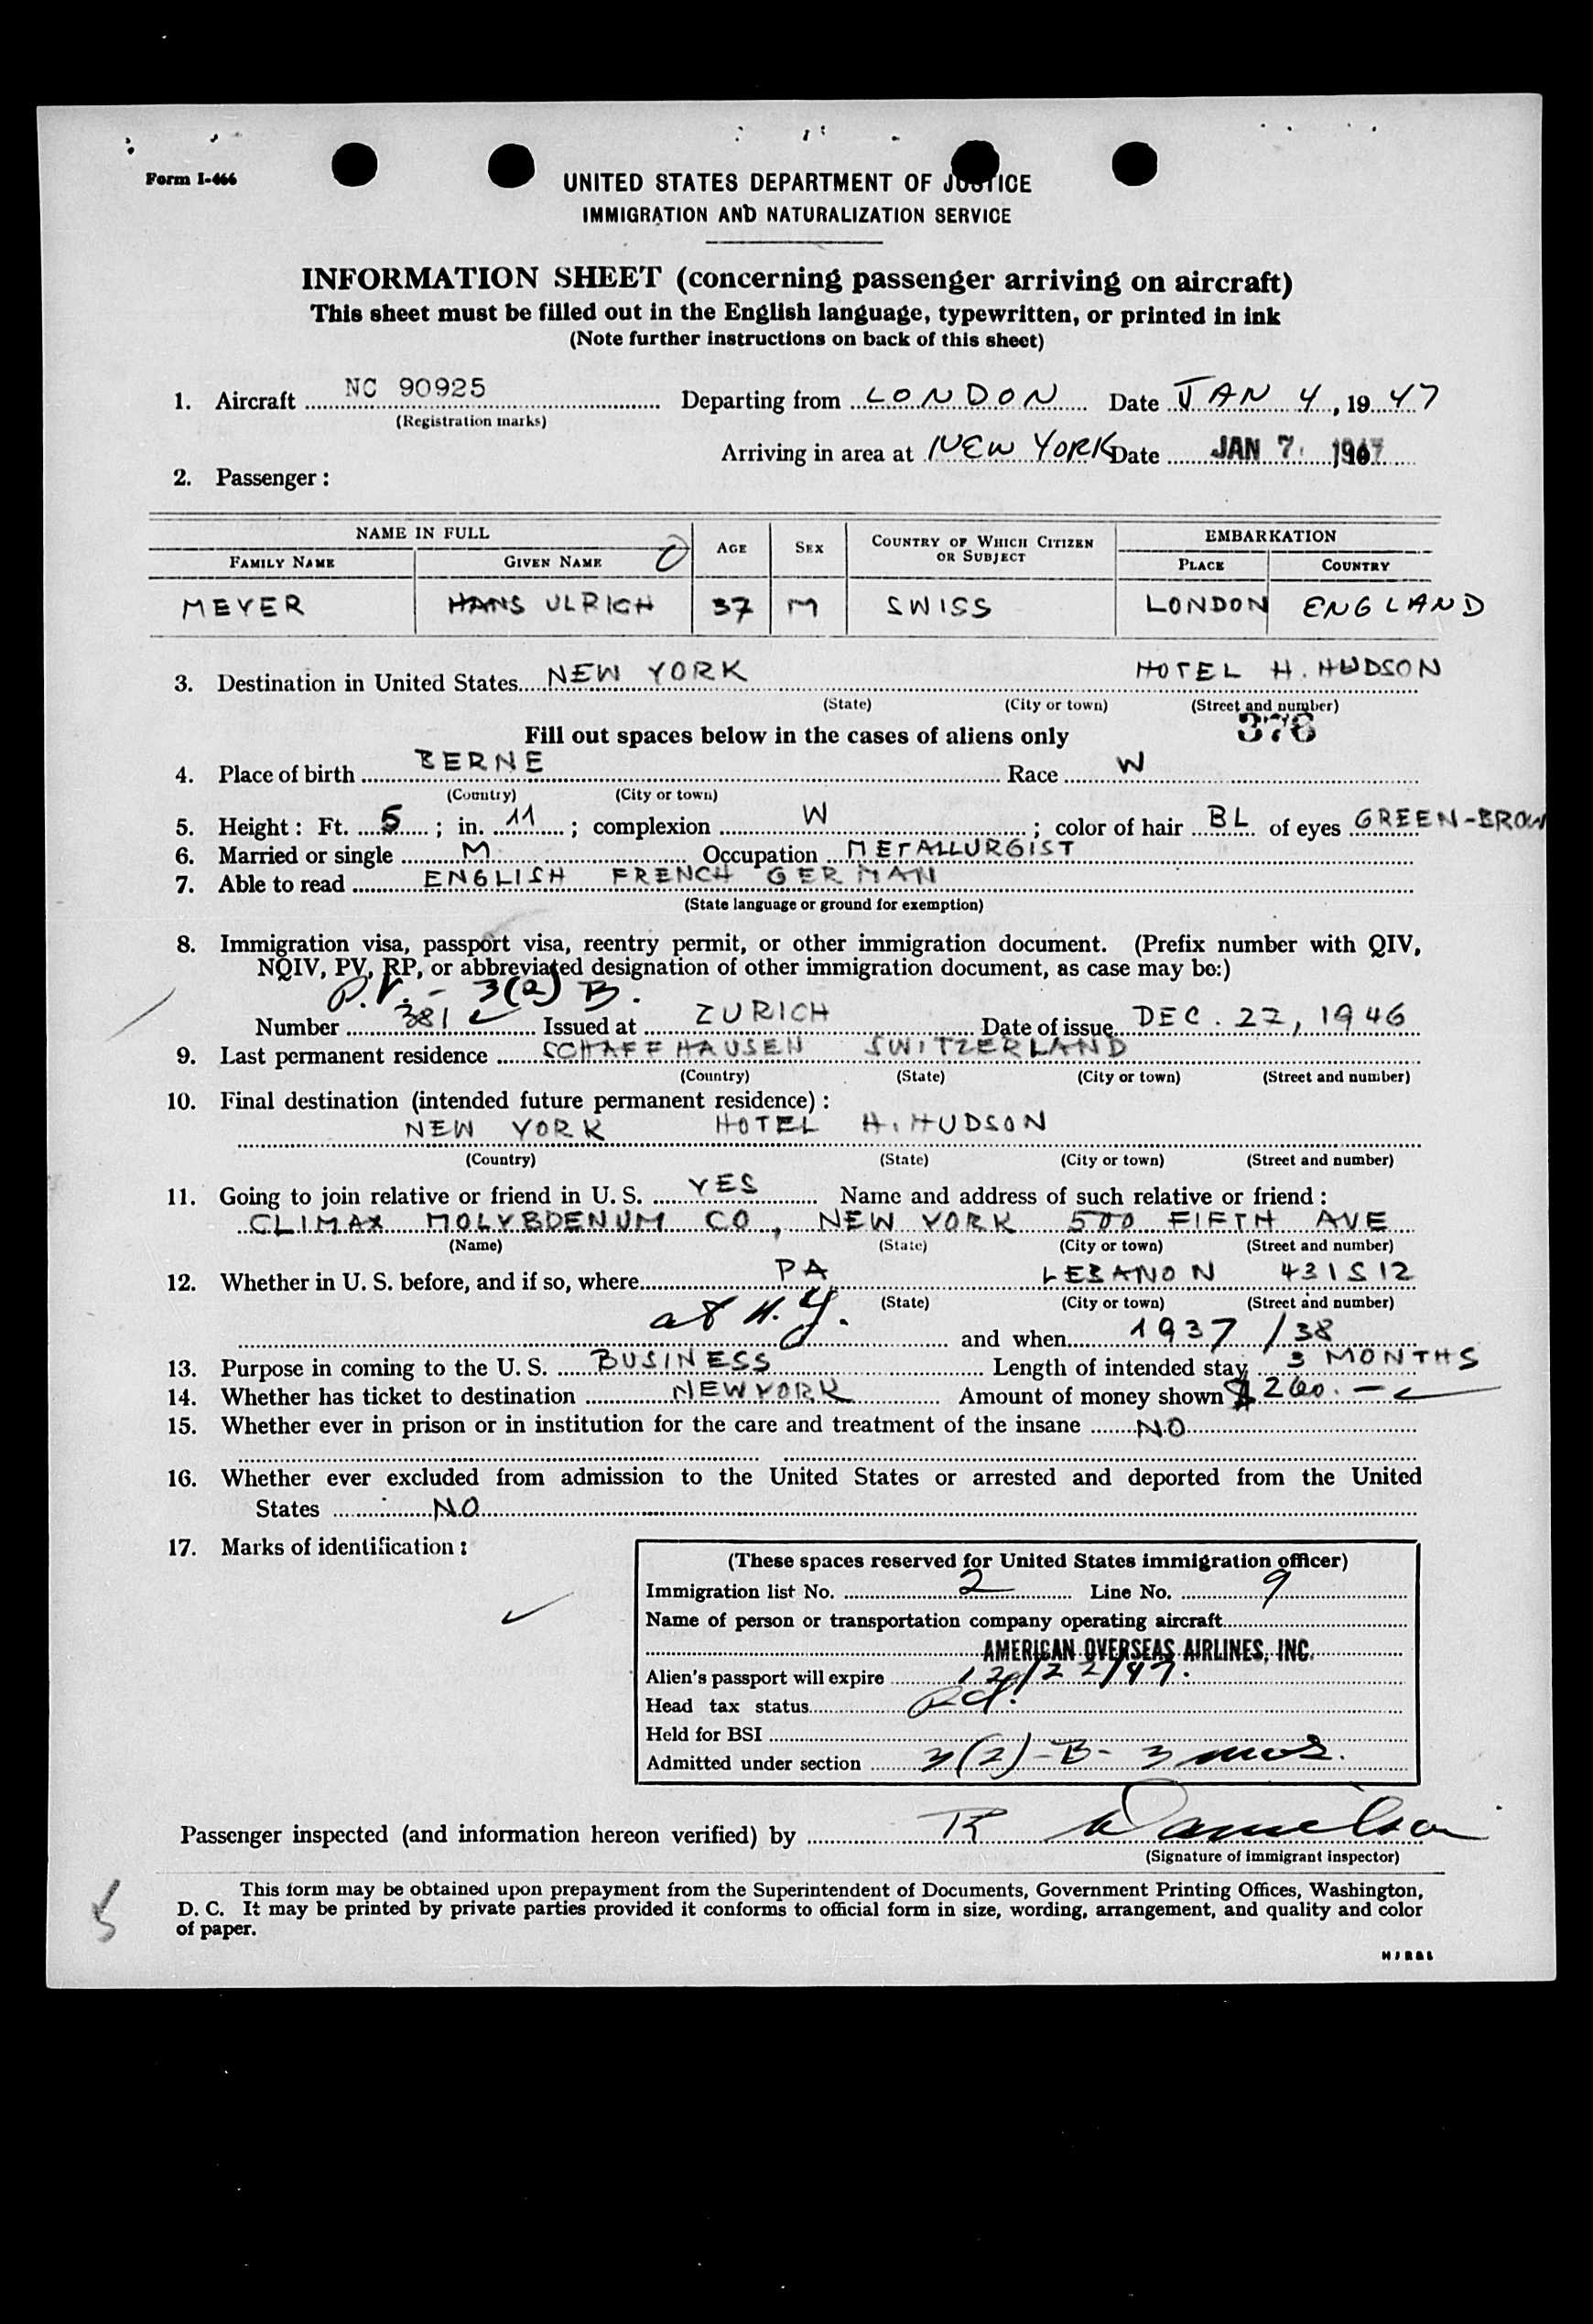 Form I-466
UNITED STATES DEPARTMENT OF JUSTICE
IMMIGRATION AND NATURALIZATION SERVICE
INFORMATION SHEET (concerning passenger arriving on aircraft)
This sheet must be filled out in the English language, typewritten, or printed in ink
(Note further instructions on back of this sheet)
1. Aircraft NC 90925 Departing from LONDON Date JAN 4, 1947
(Registration marks)
Arriving in area at NEW YORK Date JAN 7 1947
2. Passenger:
NAME IN FULL AGE SEX COUNTRY OF WHICH CITIZEN OR SUBJECT EMBARKATION
FAMILY NAME GIVEN NAME PLACE COUNTRY
MEYER HANS ULRICH 37 M SWISS LONDON ENGLAND
3. Destination in United States NEW YORK HOTEL H. HUDSON
(State) (City or town) (Street and number)
376
Fill out spaces below in the cases of aliens only
4. Place of birth BERNE Race W
(Country) (City or town)
5. Height: Ft. 5; in. 11; complexion W; color of hair BL of eyes GREEN-BROW
6. Married or single M Occupation METALLURGIST
7. Able to read ENGLISH FRENCH GERMAN
(State language or ground for exemption)
8. Immigration visa, passport visa, reentry permit, or other immigration document. (Prefix number with QIV,
NQIV, PV, RP, or abbreviated designation of other immigration document, as case may be:)
P.V. - 3(2) B.
Number 381 Issued at ZURICH Date of issue DEC. 27, 1946
9. Last permanent residence SCHAFFHAUSEN SWITZERLAND
(Country) (State) (City or town) (Street and number)
10. Final destination (intended future permanent residence):
NEW YORK HOTEL H. HUDSON
(Country) (State) (City or town) (Street and number)
11. Going to join relative or friend in U. S. YES Name and address of such relative or friend:
CLIMAX MOLYBDENUM CO, NEW YORK 500 FIFTH AVE
(Name) (State) (City or town) (Street and number)
12. Whether in U. S. before, and if so, where PA LEBANON 431 S 12
(State) (City or town) (Street and number)
at N.Y. and when 1937/38
13. Purpose in coming to the U. S. BUSINESS Length of intended stay 3 MONTHS
14. Whether has ticket to destination NEWYORK Amount of money shown $260.-
15. Whether ever in prison or in institution for the care and treatment of the insane NO
16. Whether ever excluded from admission to the United States or arrested and deported from the United
States NO
17. Marks of identification:
(These spaces reserved for United States immigration officer)
Immigration list No. 2 Line No. 9
Name of person or transportation company operating aircraft
AMERICAN OVERSEAS AIRLINES, INC.
Alien's passport will expire 12/22/47.
Head tax status
Held for BSI
Admitted under section 3(2)-B- 3 mos.
Passenger inspected (and information hereon verified) by R Danielson
(Signature of immigrant inspector)
This form may be obtained upon prepayment from the Superintendent of Documents, Government Printing Offices, Washington,
D. C. It may be printed by private parties provided it conforms to official form in size, wording, arrangement, and quality and color
of paper.